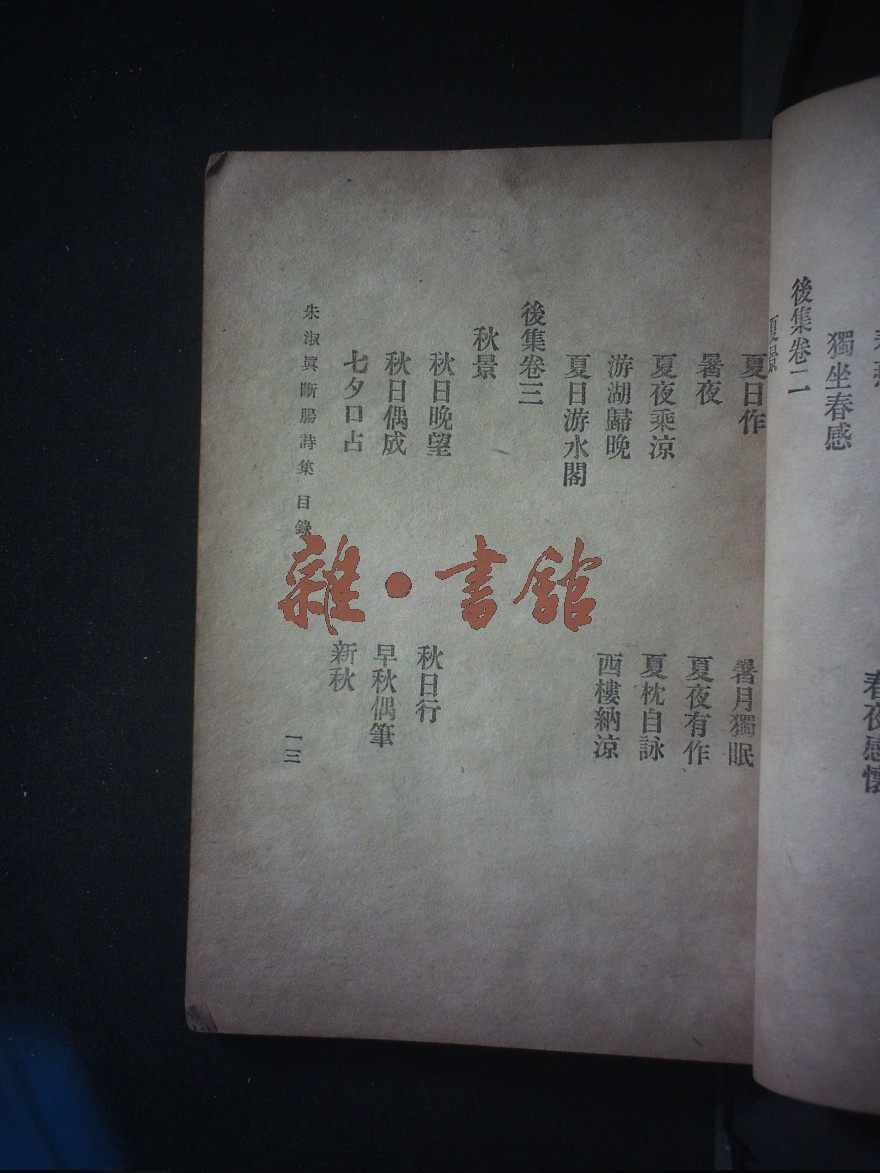 春夜感懷
獨坐春感
後集卷二
夏景
夏日作
暑月獨眠
暑夜
夏夜有作
夏夜乘涼
夏枕自詠
游湖歸晚
西樓納涼
夏日游水閣
後集卷三
秋景
秋日晚望
秋日行
秋日偶成
早秋偶筆
七夕口占
新秋
朱淑眞斷腸詩集 目錄
一三
雜・書館